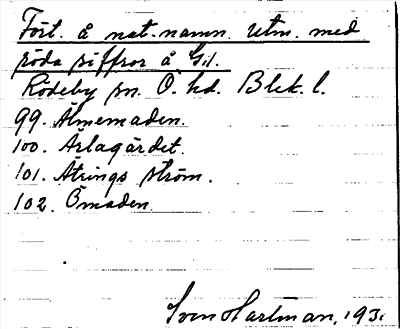 Fört. å nat.namn. utm. med
röda siffror å G.l.
Rödeby sn. Ö. hd. Blek. l.
99. Älmemaden.
100. Ärlagärdet.
101. Ätrings ström.
102. Ömaden.
Sven Hartman, 193.